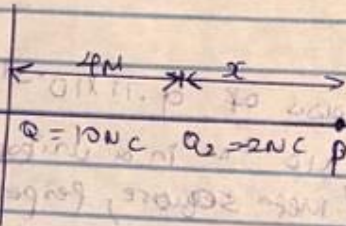 4M x
Q = 10NC Q₂ = 2NC P